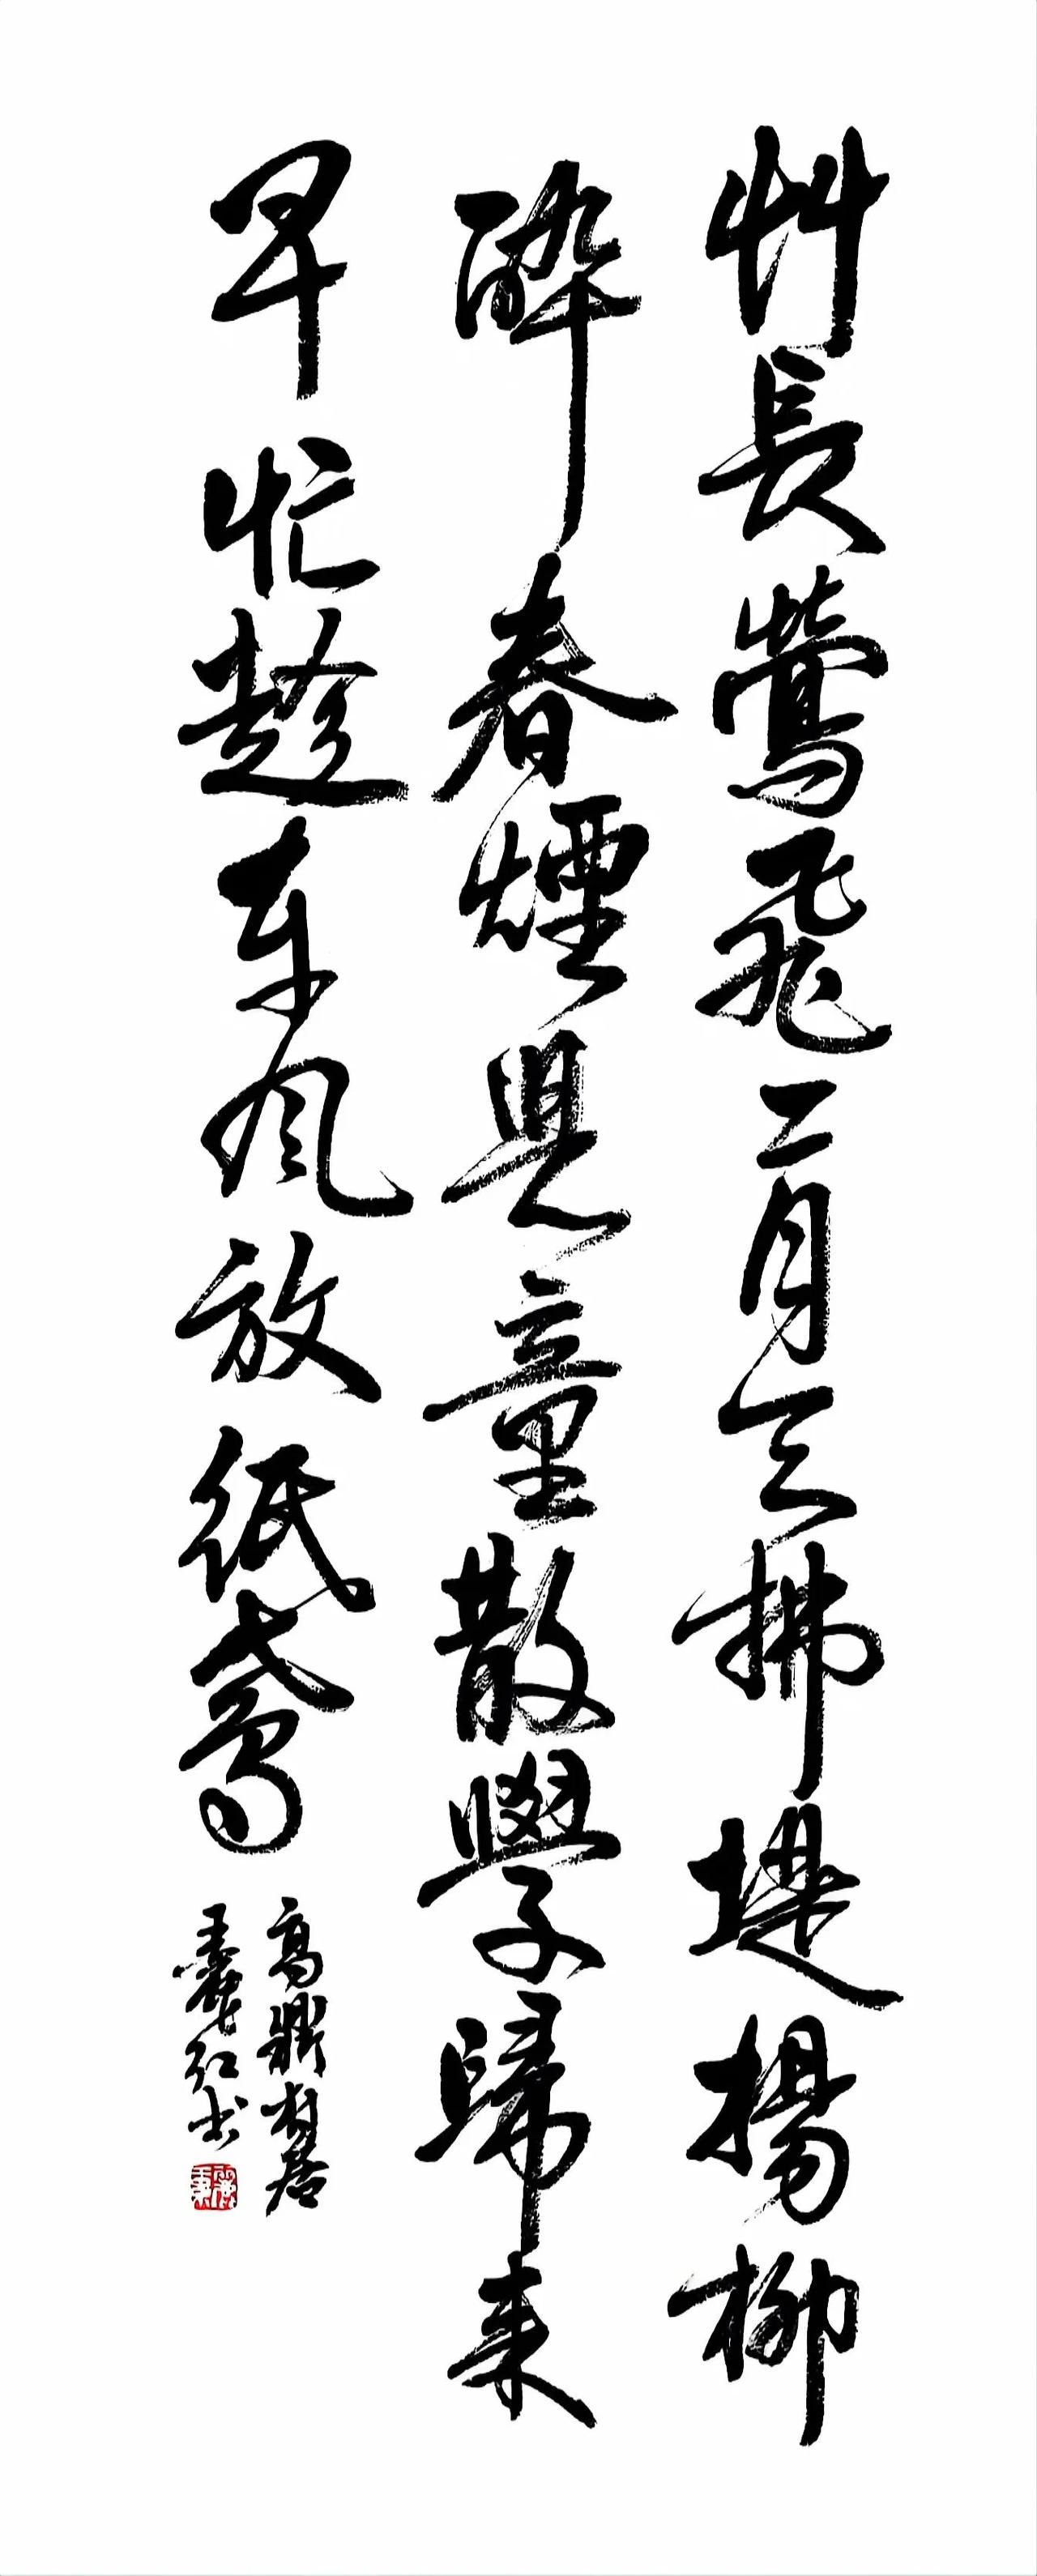 艸長鶯飛二月天拂堤楊柳
醉春煙兒童散學歸来
早忙趁東风放紙鳶
高鼎村居